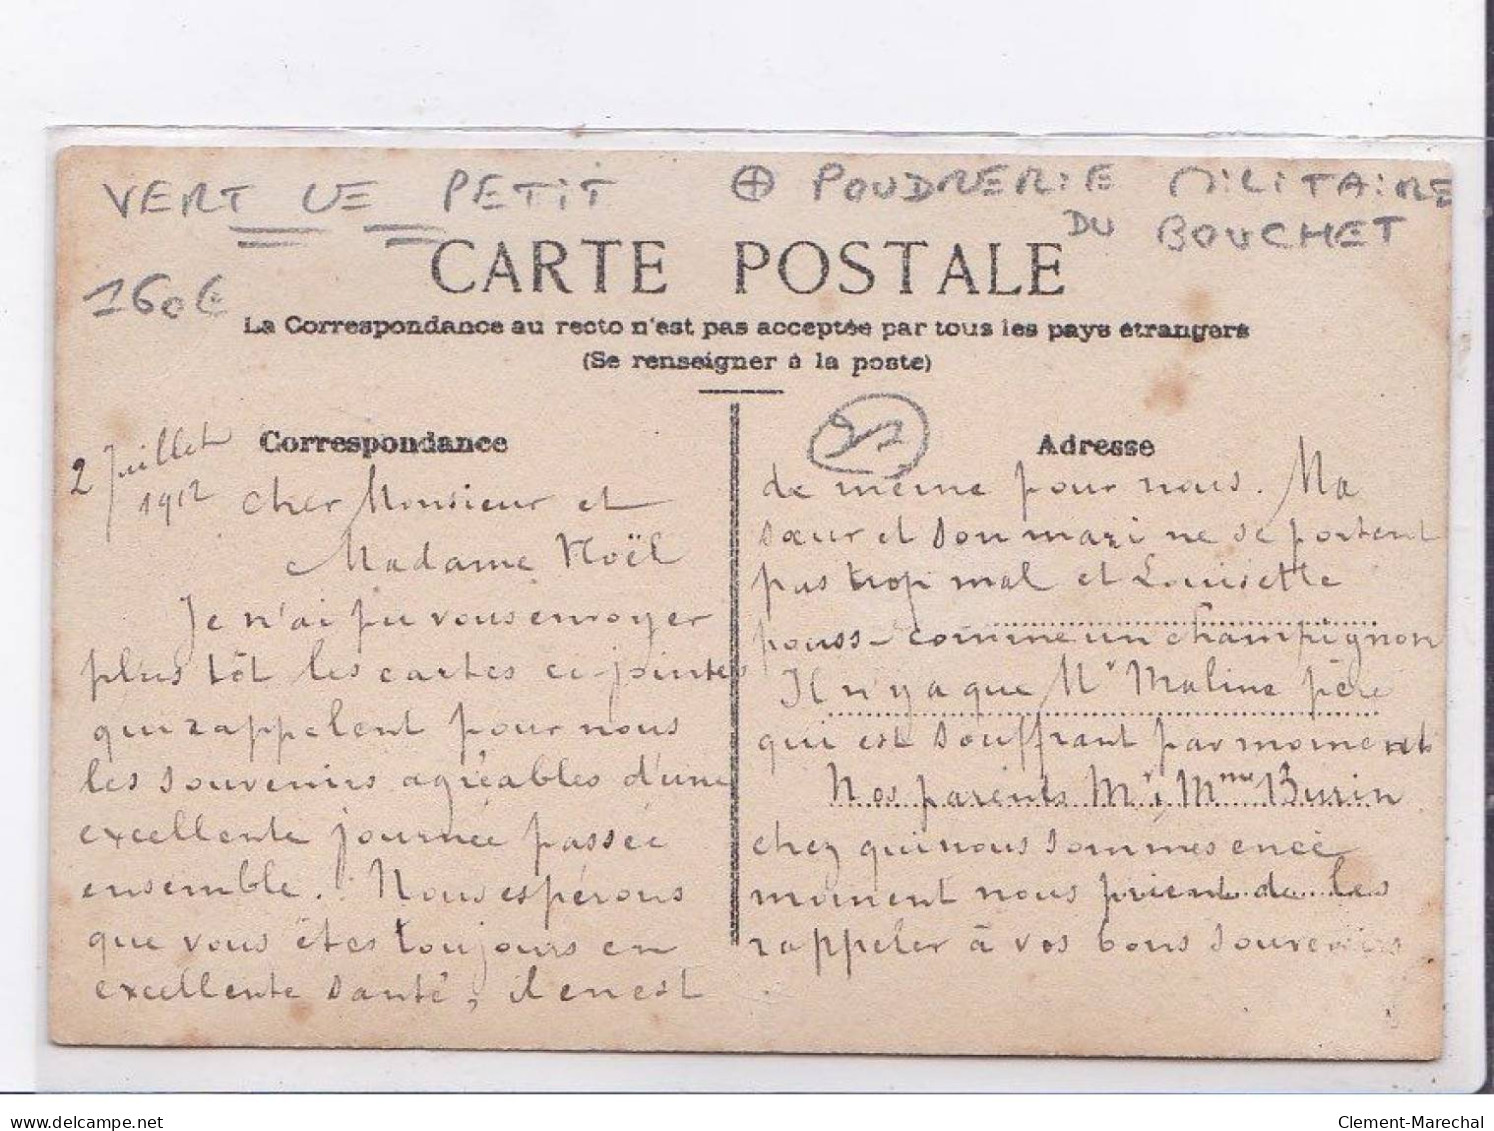 VERT LE PETIT ⊕ POUDRERIE MILITAIRE
DU BOUCHET
160€
CARTE POSTALE
La Correspondance au recto n'est pas acceptée par tous les pays étrangers
(Se renseigner à la poste)
Correspondance
2 Juillet
1912
Cher Monsieur et
Madame Noël
Je n'ai pu vous envoyer
plus tôt les cartes ci-jointes
qui rappelent pour nous
les souvenirs agréables d'une
excellente journée passée
ensemble. Nous espérons
que vous êtes toujours en
excellente santé, il en est
91
Adresse
de même pour nous. Ma
sœur et son mari ne se portent
pas trop mal et Louisette
pouss- comme un champignon
Il n'y a que Mr Maline père
qui est souffrant par moments
Nos parents Mr, Mme Burin
chez qui nous sommes en ce
moment nous prient de les
rappeler à vos bons souvenirs
delcampe.net
Clement-Marechal